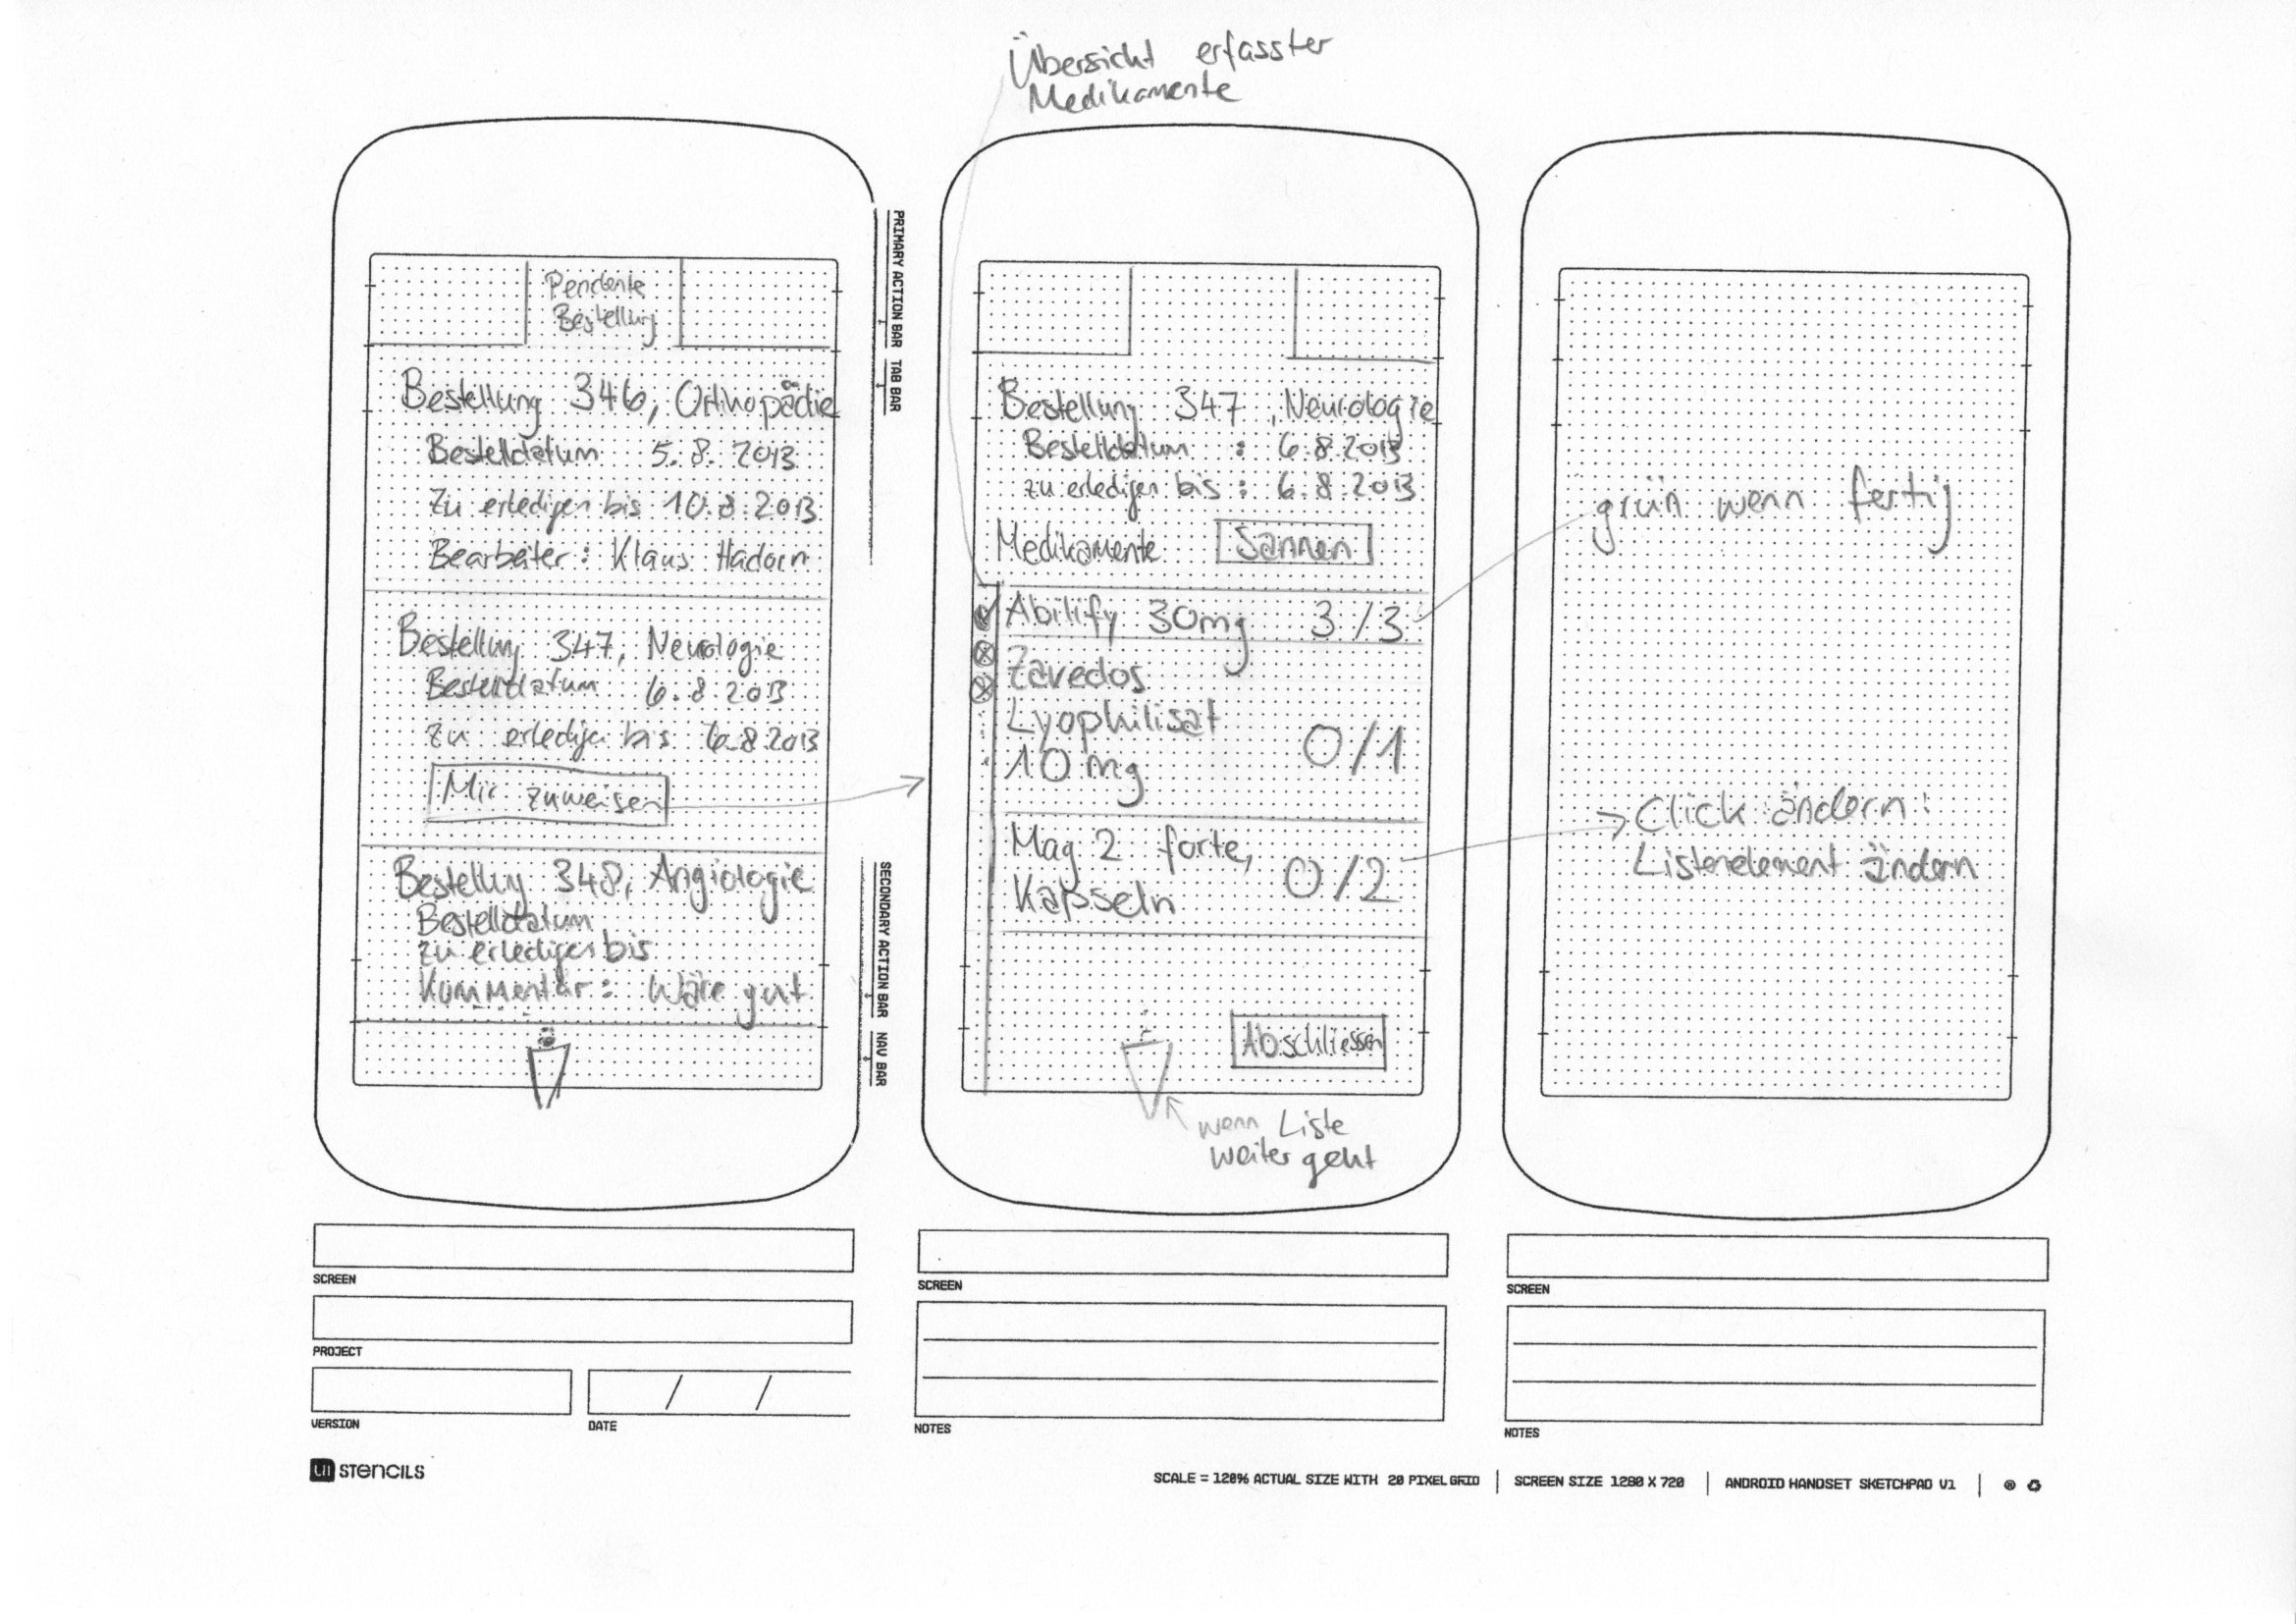 Übersicht erfasster
Medikamente
Pendente
Bestellung
Bestellung 346, Orthopädie
Bestelldatum 5.8.2013
Zu erledigen bis 10.8.2013
Bearbeiter: Klaus Hadorn
Bestellung 347, Neurologie
Bestelldatum 6.8.2013
Zu erledigen bis 6.8.2013
Mir zuweisen
Bestellung 348, Angiologie
Bestelldatum
zu erledigen bis
Kommentar: Wäre gut
PRIMARY ACTION BAR
TAB BAR
SECONDARY ACTION BAR
NAV BAR
Bestellung 347, Neurologie
Bestelldatum : 6.8.2013
zu erledigen bis : 6.8.2013
Medikamente Scannen
Abilify 30mg 3/3
Zavedos
Lyophilisat
10 mg 0/1
Mag 2 forte,
Kapseln 0/2
Abschliessen
wenn Liste
weiter geht
grün wenn fertig
Click ändern:
Listenelement ändern
SCREEN
PROJECT
VERSION
DATE
/ /
SCREEN
NOTES
SCREEN
NOTES
UI STENCILS
SCALE = 120% ACTUAL SIZE WITH 20 PIXEL GRID | SCREEN SIZE 1280 X 720 | ANDROID HANDSET SKETCHPAD V1 |